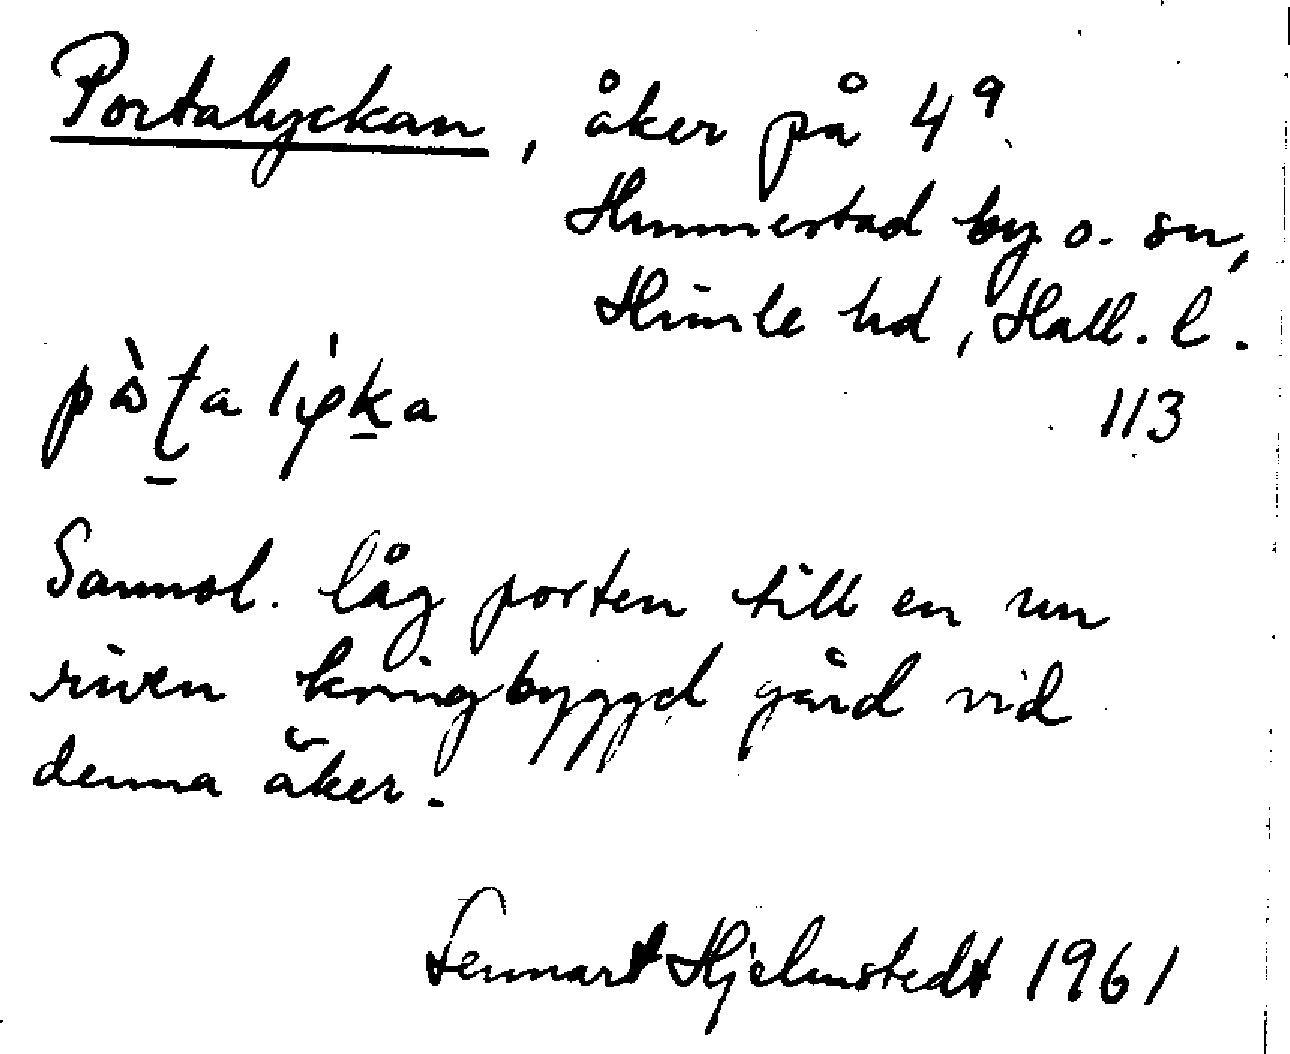 Portalyckan, åker på 4⁹
Hunnestad by o. sn,
Himle hd, Hall. l.
113
Sannol. låg porten till en nu
riven kringbyggd gård vid
denna åker.
Lennart Hjelmstedt 1961